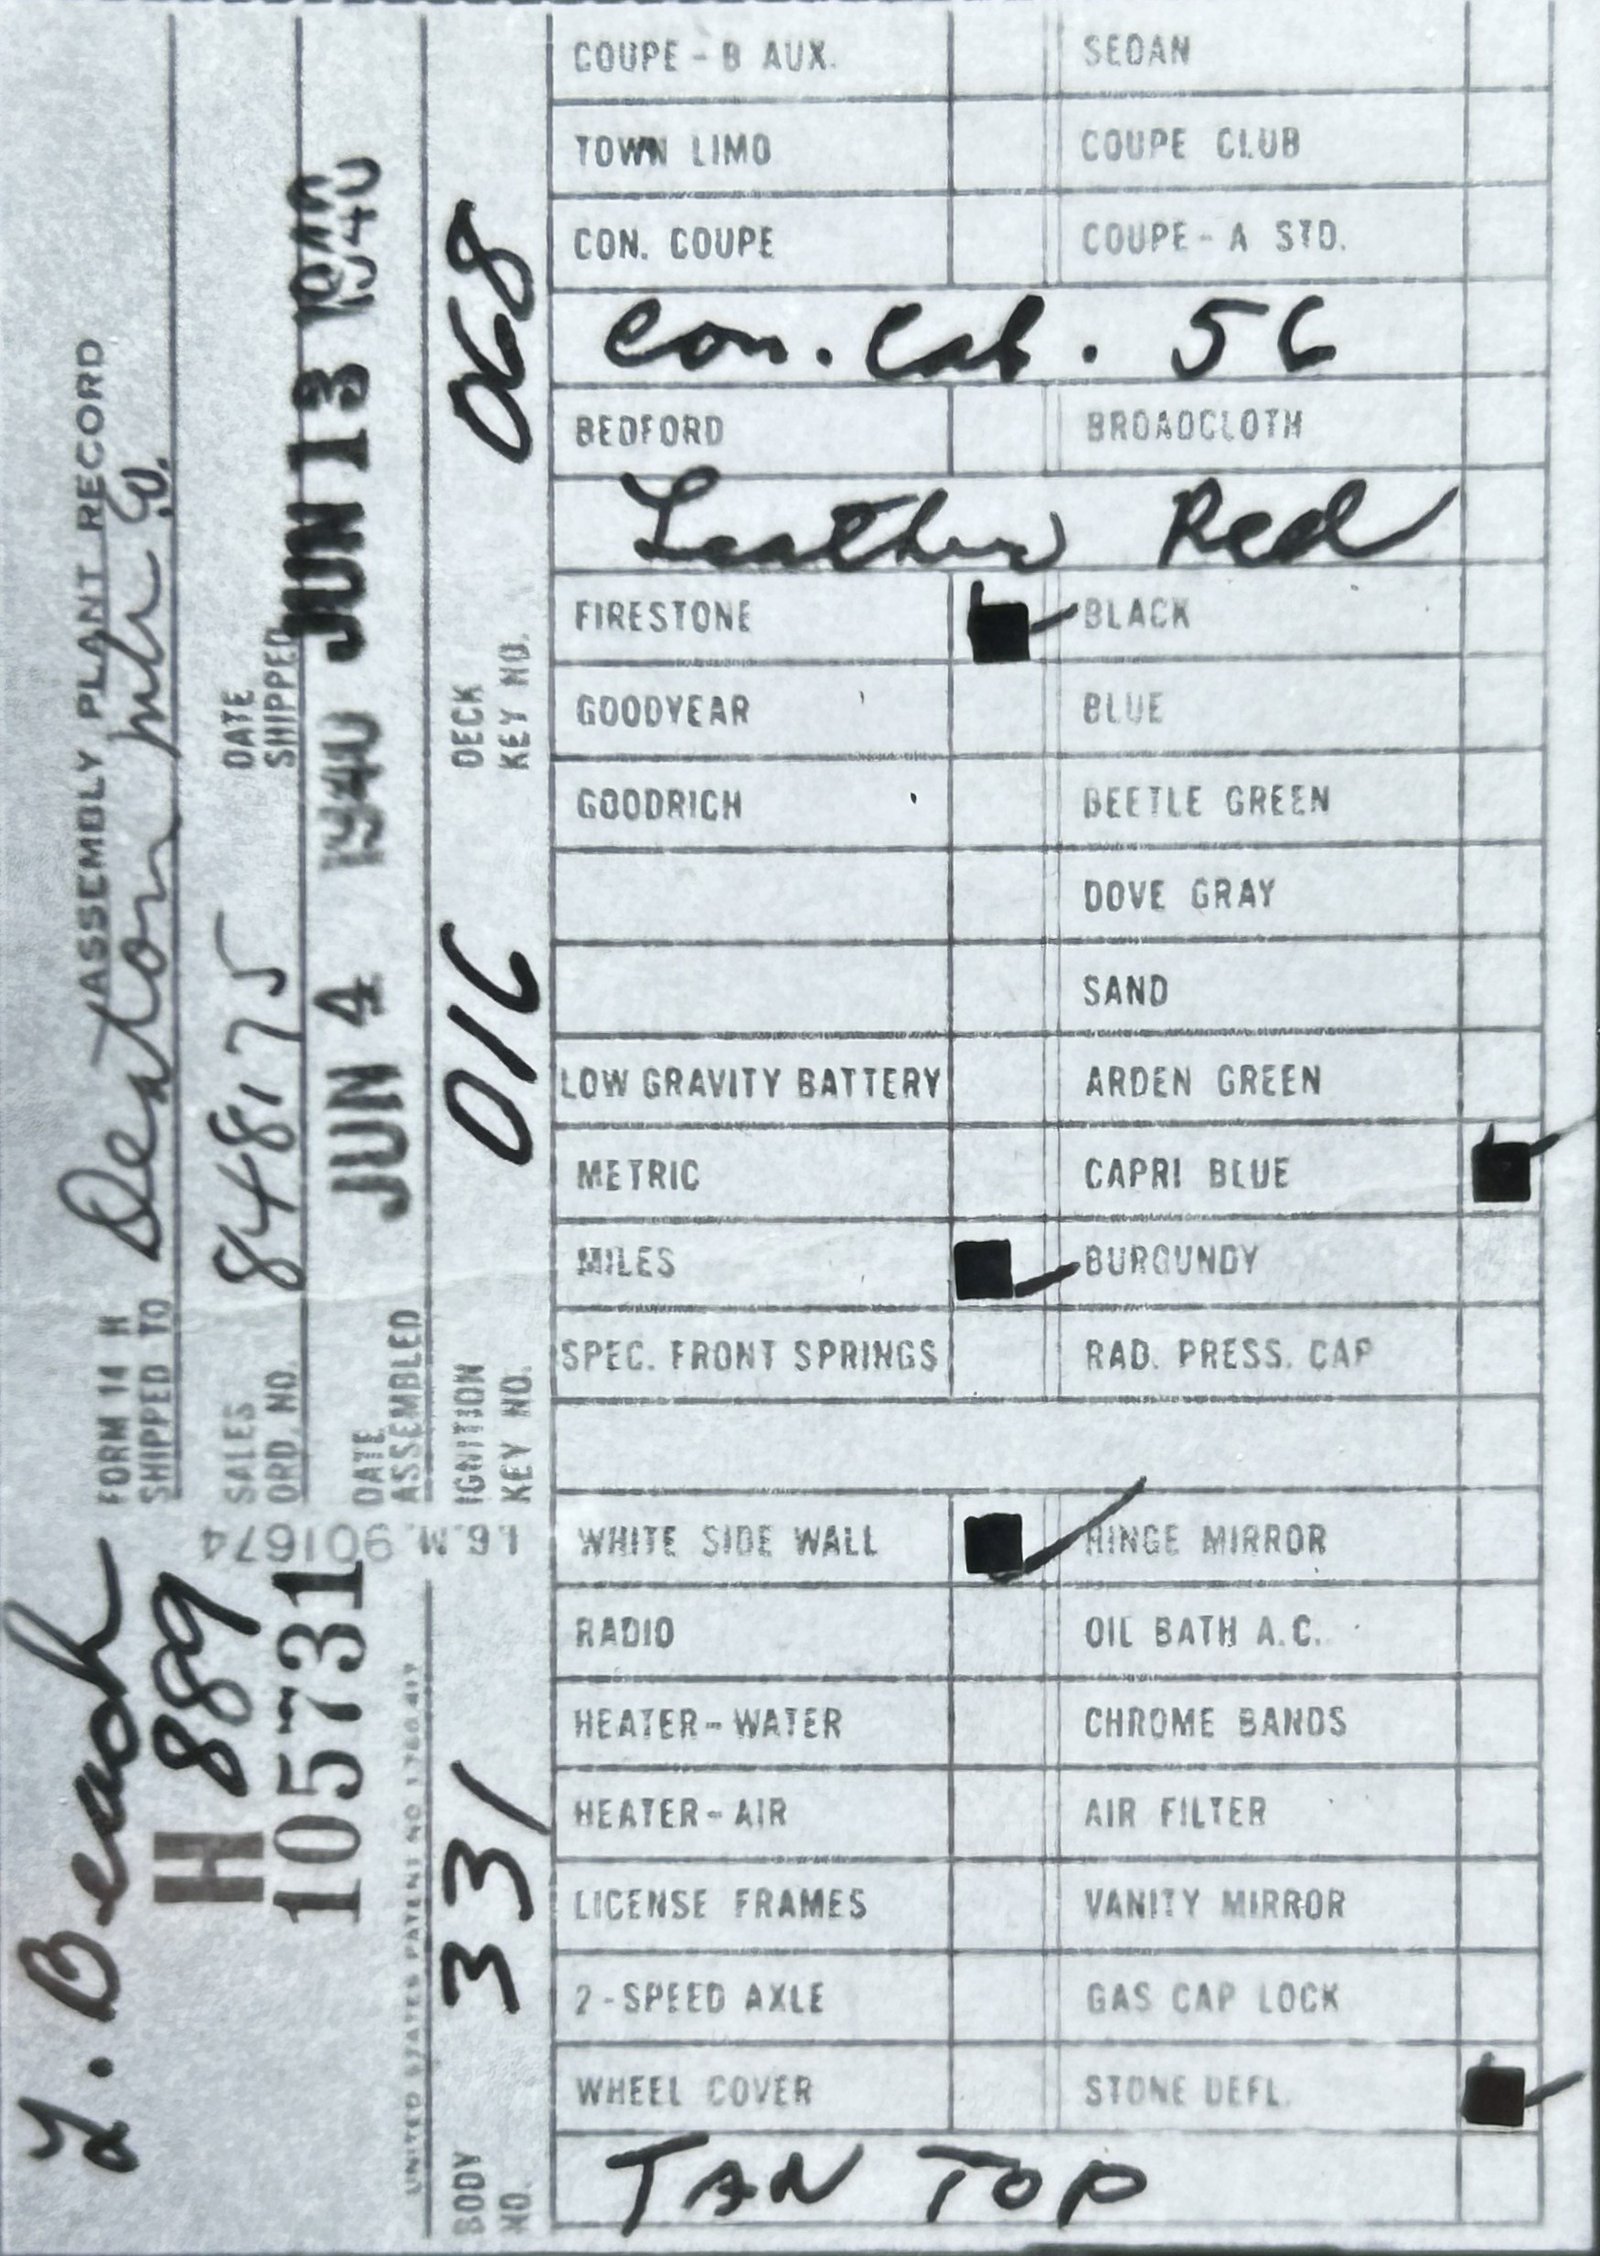 L. Beach
H 889
105731
UNITED STATES PATENT NO
I.B.M. 901674
FORM 14 H ASSEMBLY PLANT RECORD
SHIPPED TO
SALES ORD. NO. 848175
DATE SHIPPED JUN 13 1940
DATE ASSEMBLED JUN 4 1940
BODY NO. 331
IGNITION KEY NO. 016
DECK KEY NO. 068
COUPE - B AUX. SEDAN
TOWN LIMO COUPE CLUB
CON. COUPE COUPE - A STD.
Con. Cab. 56
BEDFORD BROADCLOTH
Leather Red
FIRESTONE BLACK
GOODYEAR BLUE
GOODRICH BEETLE GREEN
DOVE GRAY
SAND
LOW GRAVITY BATTERY ARDEN GREEN
METRIC CAPRI BLUE
MILES BURGUNDY
SPEC. FRONT SPRINGS RAD. PRESS. CAP
WHITE SIDE WALL HINGE MIRROR
RADIO OIL BATH A.C.
HEATER - WATER CHROME BANDS
HEATER - AIR AIR FILTER
LICENSE FRAMES VANITY MIRROR
2 - SPEED AXLE GAS CAP LOCK
WHEEL COVER STONE DEFL.
TAN TOP